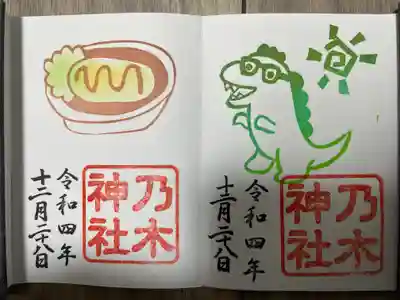 乃木
神社
令和四年
十二月二十八日
乃木
神社
令和四年
十二月二十八日